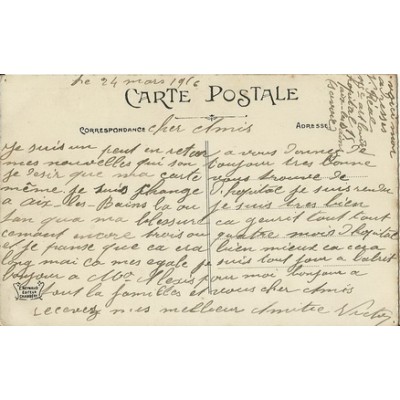 Le 24 mars 1916
CARTE POSTALE
CORRESPONDANCE
ADRESSE
cher Amis
je suis un peut en retar a vous donner de
mes nouvelles qui son toujour tres bonne
je desir que ma carte vous trouve de
même je suis change d'hopital je suis rendu
a aix les Bains la ou je suis tres bien
tan qua ma blessure ca guerit tout tout
cemant encore trois ou quatre mois d'hopital
et je panse que ca cera bien mieux ca cera
long mai ca mes egale je suis tout jour a labrit
bonjour a Mme Alexis pour moi bonjour a
tout la familles et vous cher Amis
recevez mes meilleur Amitie